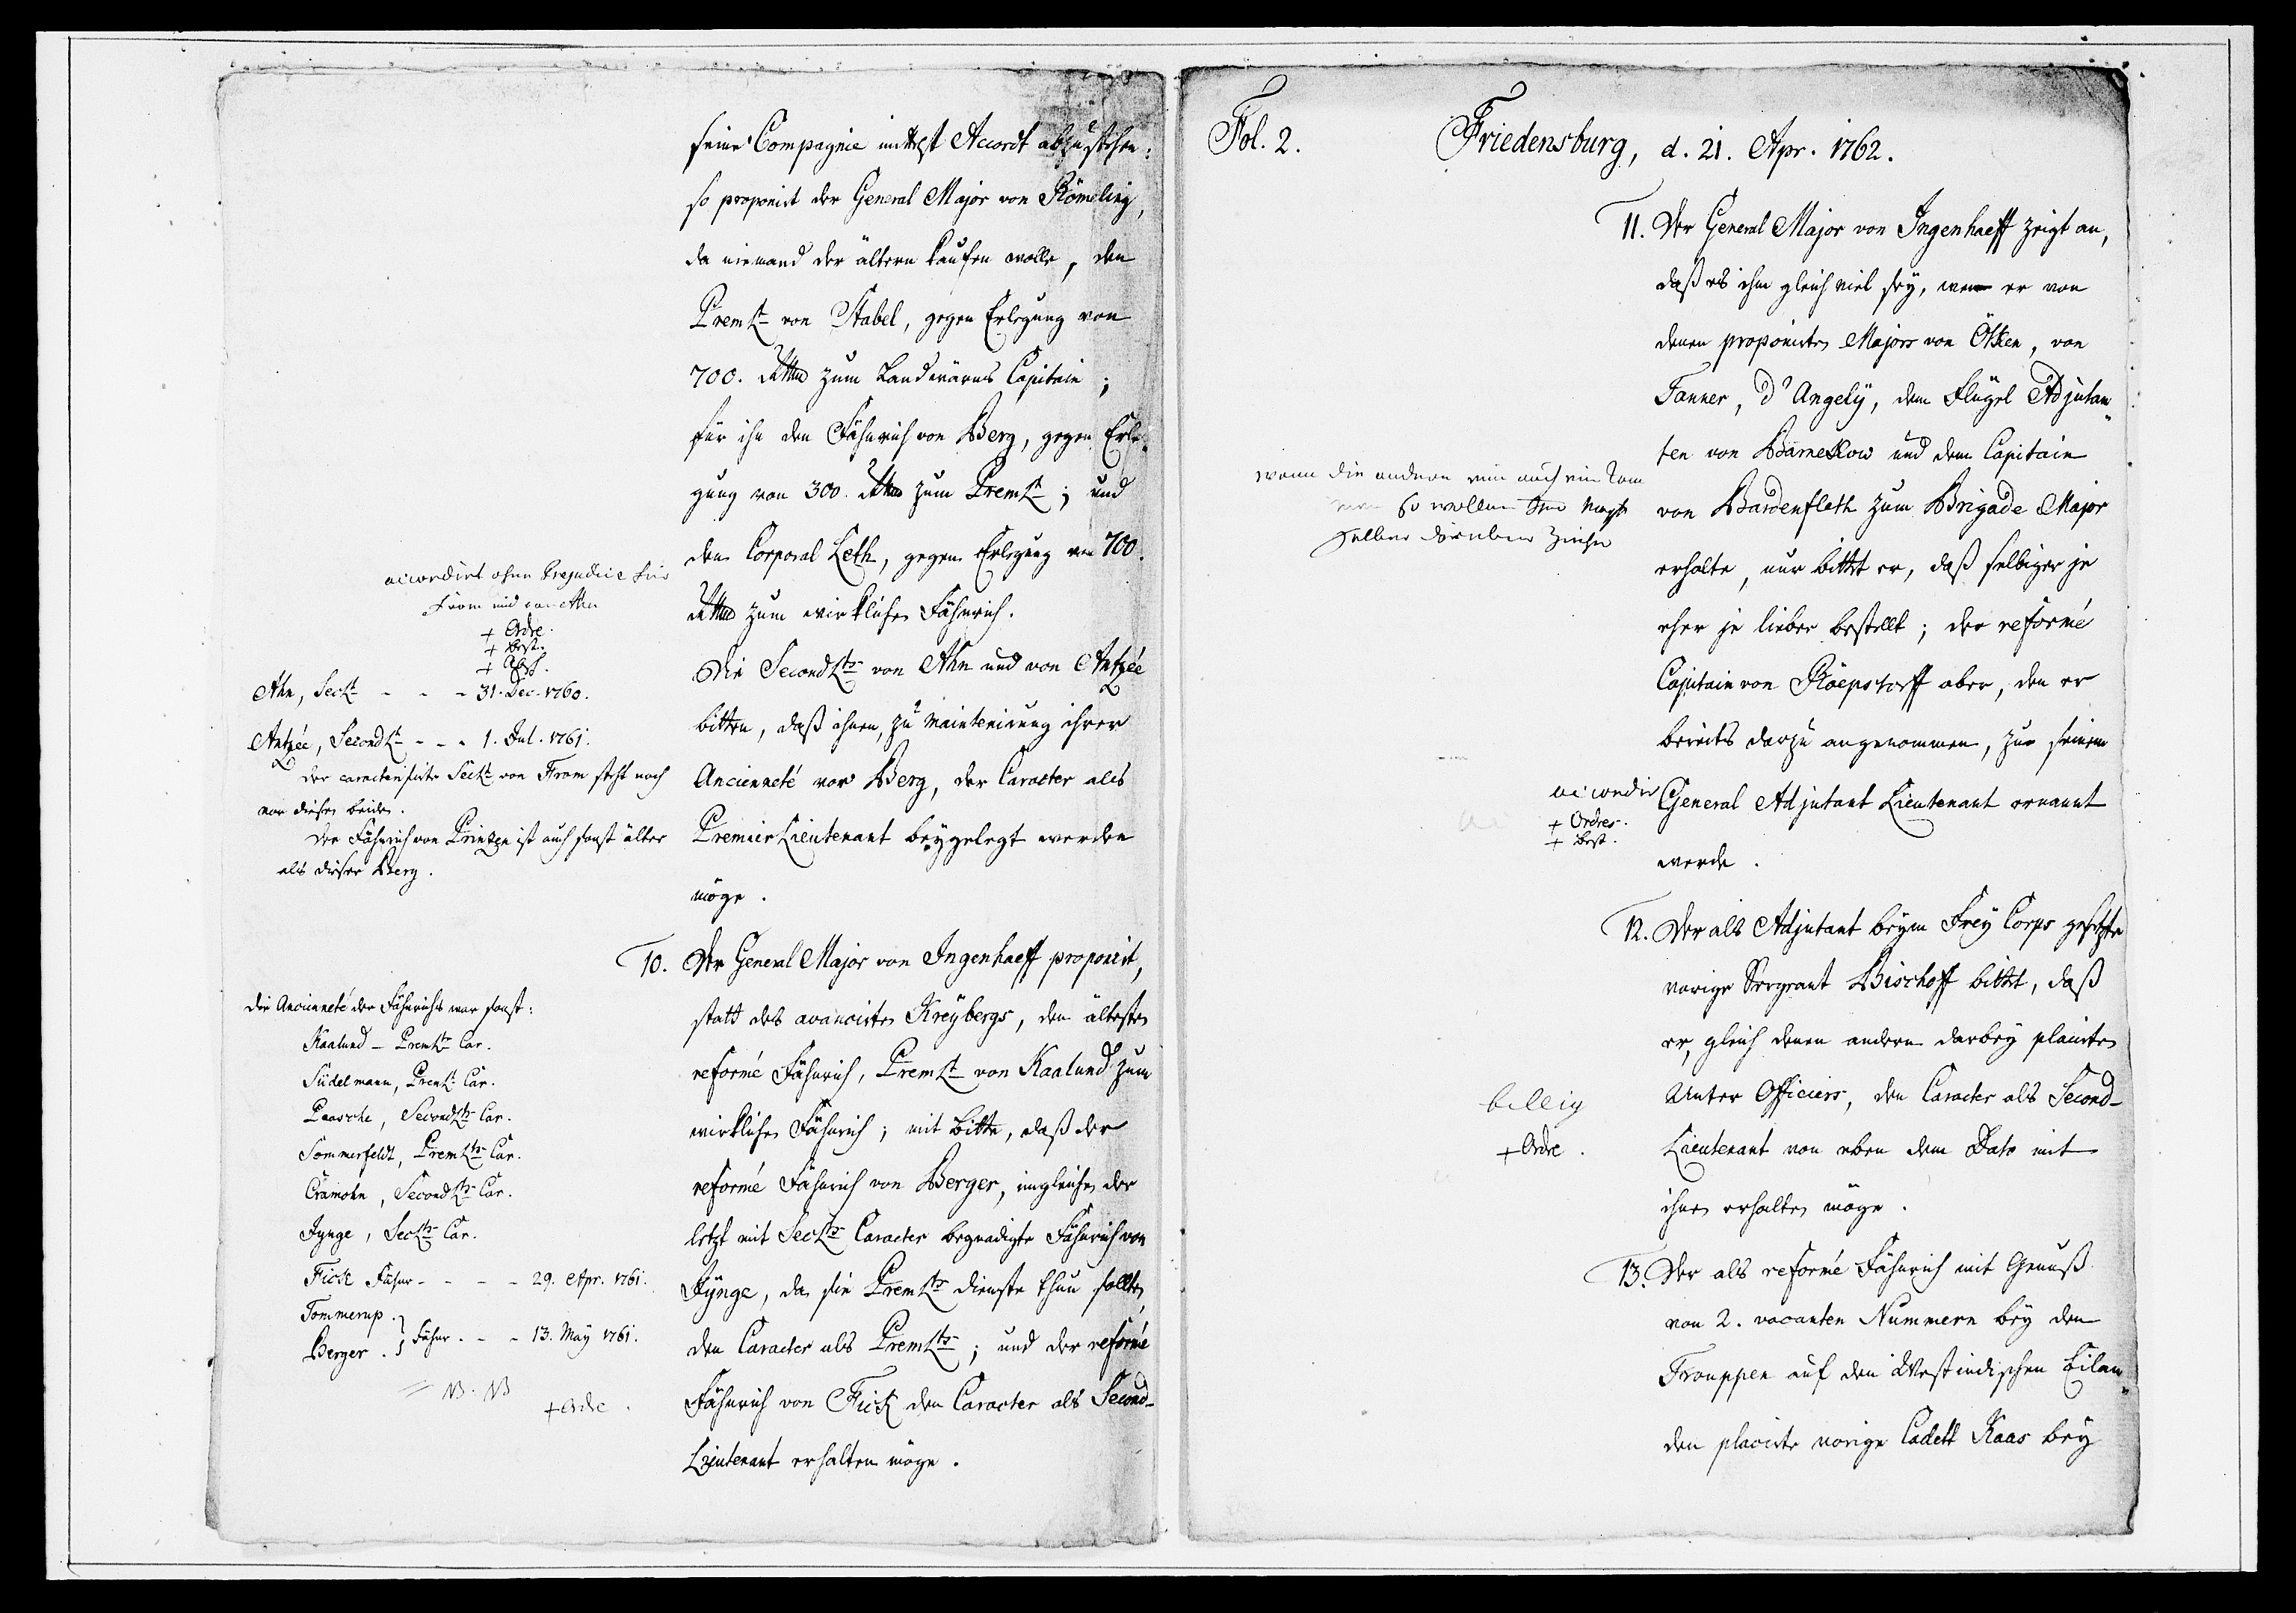 seine Compagnie mittelst Accordt abzustehen:
so proponirt der General Major von Römeling,
da niemand der ältern kaufen wolle, den
PremLt von Stabel, gegen Erlegung von
700. Rthlr zum Landwärns Capitain;
für ihn den Fähnrich von Berg, gegen Erle-
gung von 300. Rthlr zum PremLt; und
den Corporal Leth, gegen Erlegung von 700.
Rthlr zum wirklichen Fähnrich.
Die SecondLts von Ahn und von Antzée
bitten, daß ihnen, zu Maintenirung ihrer
Ancienneté vor Berg, der Caracter als
Premier Lieutenant beygelegt werden
möge.
accordirt ohne Prejudice für
From und von Ahn
+ Ordre.
+ Best.
+ Absch.
Ahn, SecLt - - - 31. Dec. 1760.
Antzée, SecondLt - - - 1. Jul. 1761.
der caracterisirte SecLt von From steht noch
vor diesen beiden.
Der Fähnrich von Printzen ist auch sonst älter
als dieser Berg.
10. Der General Major von Ingenhaeff proponirt,
statt des avancirten Kreybergs, den ältesten
reformé Fähnrich, PremLt von Kaalund zum
wirklichen Fähnrich; mit Bitte, daß der
reformé Fähnrich von Berger, imgleichen der
letzt mit SecLts Caracter begnadigte Fähnrich von
Fynge, da sie PremLts Dienste thun sollten,
den Caracter als PremLts; und der reformé
Fähnrich von Fick den Caracter als Second-
Lieutenant erhalten möge.
Die Ancienneté der Fähnrichs war sonst:
Kaalund - PremLts Car.
Südelmann, PremLt Car.
Paasche, SecondLts Car.
Sommerfeldt, PremLts Car.
Cramohn, SecondLts Car.
Fynge, SecLts Car.
Fick Fähnr - - - - 29. Apr. 1761.
Tommerup.
Berger. } Fähnr. - - - 13. May 1761.
NB. NB
+ Ordre.
Fol. 2. Friedensburg, d. 21. Apr. 1762.
11. Der General Major von Ingenhaeff zeigt an,
daß es ihm gleich viel sey, wen er von
denen proponirten Majors von Ötken, von
Tanner, d'Angely, dem Flügel Adjutan-
ten von Barnekow und dem Capitain
von Bardenfleth zum Brigade Major
erhalte, nur bittet er, daß selbiger je
eher je lieber bestellt; der reformé
Capitain von Röepstorff aber, den er
bereits darzu angenommen, zu seinem
General Adjutant Lieutenant ernannt
werde.
wenn die andern nun auch ein kom
men so wollen
selber darüber
accordirt
+ Ordres.
+ Best.
12. Der als Adjutant beym Frey Corps gesetzte
vorige Sergeant Bischoff bittet, daß
er, gleich denen andern darbey placirten
Unter Officiers, den Caracter als Second-
Lieutenant von eben dem Dato mit
ihnen erhalten möge.
billig
+ Ordre.
13. Der als reformé Fähnrich mit Genuß
von 2. vacanten Nummern bey den
Trouppen auf den Westindischen Eilan-
den placirte vorige Cadett Kaas bey